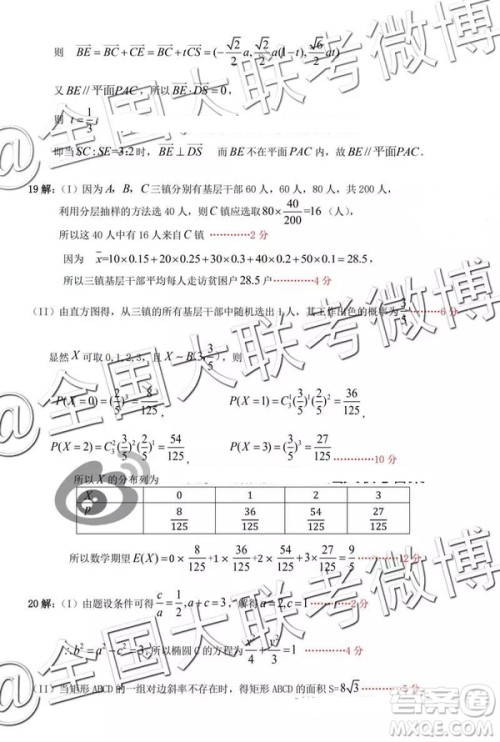 则 $\overrightarrow{BE}=\overrightarrow{BC}+\overrightarrow{CE}=\overrightarrow{BC}+t\overrightarrow{CS}=(-\frac{\sqrt{2}}{2}a,\frac{\sqrt{2}}{2}a(1-t),\frac{\sqrt{6}}{2}at)$
又 BE//平面PAC，所以 $\overrightarrow{BE}\cdot\overrightarrow{DS}=0$，
则 $t=\frac{1}{3}$，
即当 SC:SE=3:2时，$\overrightarrow{BE}\perp\overrightarrow{DS}$ 而BE 不在平面PAC 内，故BE//平面PAC
19解:（I）因为 A，B，C 三镇分别有基层干部 60 人，60 人，80 人，共 200 人，
利用分层抽样的方法选 40 人，则 C 镇应选取 $80\times\frac{40}{200}=16$（人），
所以这 40 人中有 16 人来自 C 镇 …………2 分
因为 $\overline{x}$=10×0.15+20×0.25+30×0.3+40×0.2+50×0.1=28.5，
所以三镇基层干部平均每人走访贫困户 28.5 户…………4 分
（II）由直方图得，从三镇的所有基层干部中随机选出 1 人，其工作出色的概率为 $\frac{3}{5}$ …………6 分
显然 X 可取 0,1,2,3，且 X～B(3,$\frac{3}{5}$)，则
$P(X=0)=(\frac{2}{5})^3=\frac{8}{125}$ $P(X=1)=C_3^1(\frac{3}{5})^1(\frac{2}{5})^2=\frac{36}{125}$，
$P(X=2)=C_3^2(\frac{3}{5})^2(\frac{2}{5})^1=\frac{54}{125}$ $P(X=3)=C_3^3(\frac{3}{5})^3=\frac{27}{125}$ …………10 分
所以 X 的分布列为
X 0 1 2 3
P $\frac{8}{125}$ $\frac{36}{125}$ $\frac{54}{125}$ $\frac{27}{125}$
所以数学期望 $E(X)=0\times\frac{8}{125}+1\times\frac{36}{125}+2\times\frac{54}{125}+3\times\frac{27}{125}=\frac{9}{5}$ …………12 分
20解:（I）由题设条件可得 $\frac{c}{a}=\frac{1}{2},a+c=3$，解得 a=2,c=1 …………2 分
∴ $b^2=a^2-c^2=3$，所以椭圆 C 的方程为 $\frac{x^2}{4}+\frac{y^2}{3}=1$ …………4 分
（II）当矩形 ABCD 的一组对边斜率不存在时，得矩形 ABCD 的面积 S=$8\sqrt{3}$ …………5 分
@全国大联考微博
@全国大联考微博
@全国大联考微博
答案圈
MXQE.COM